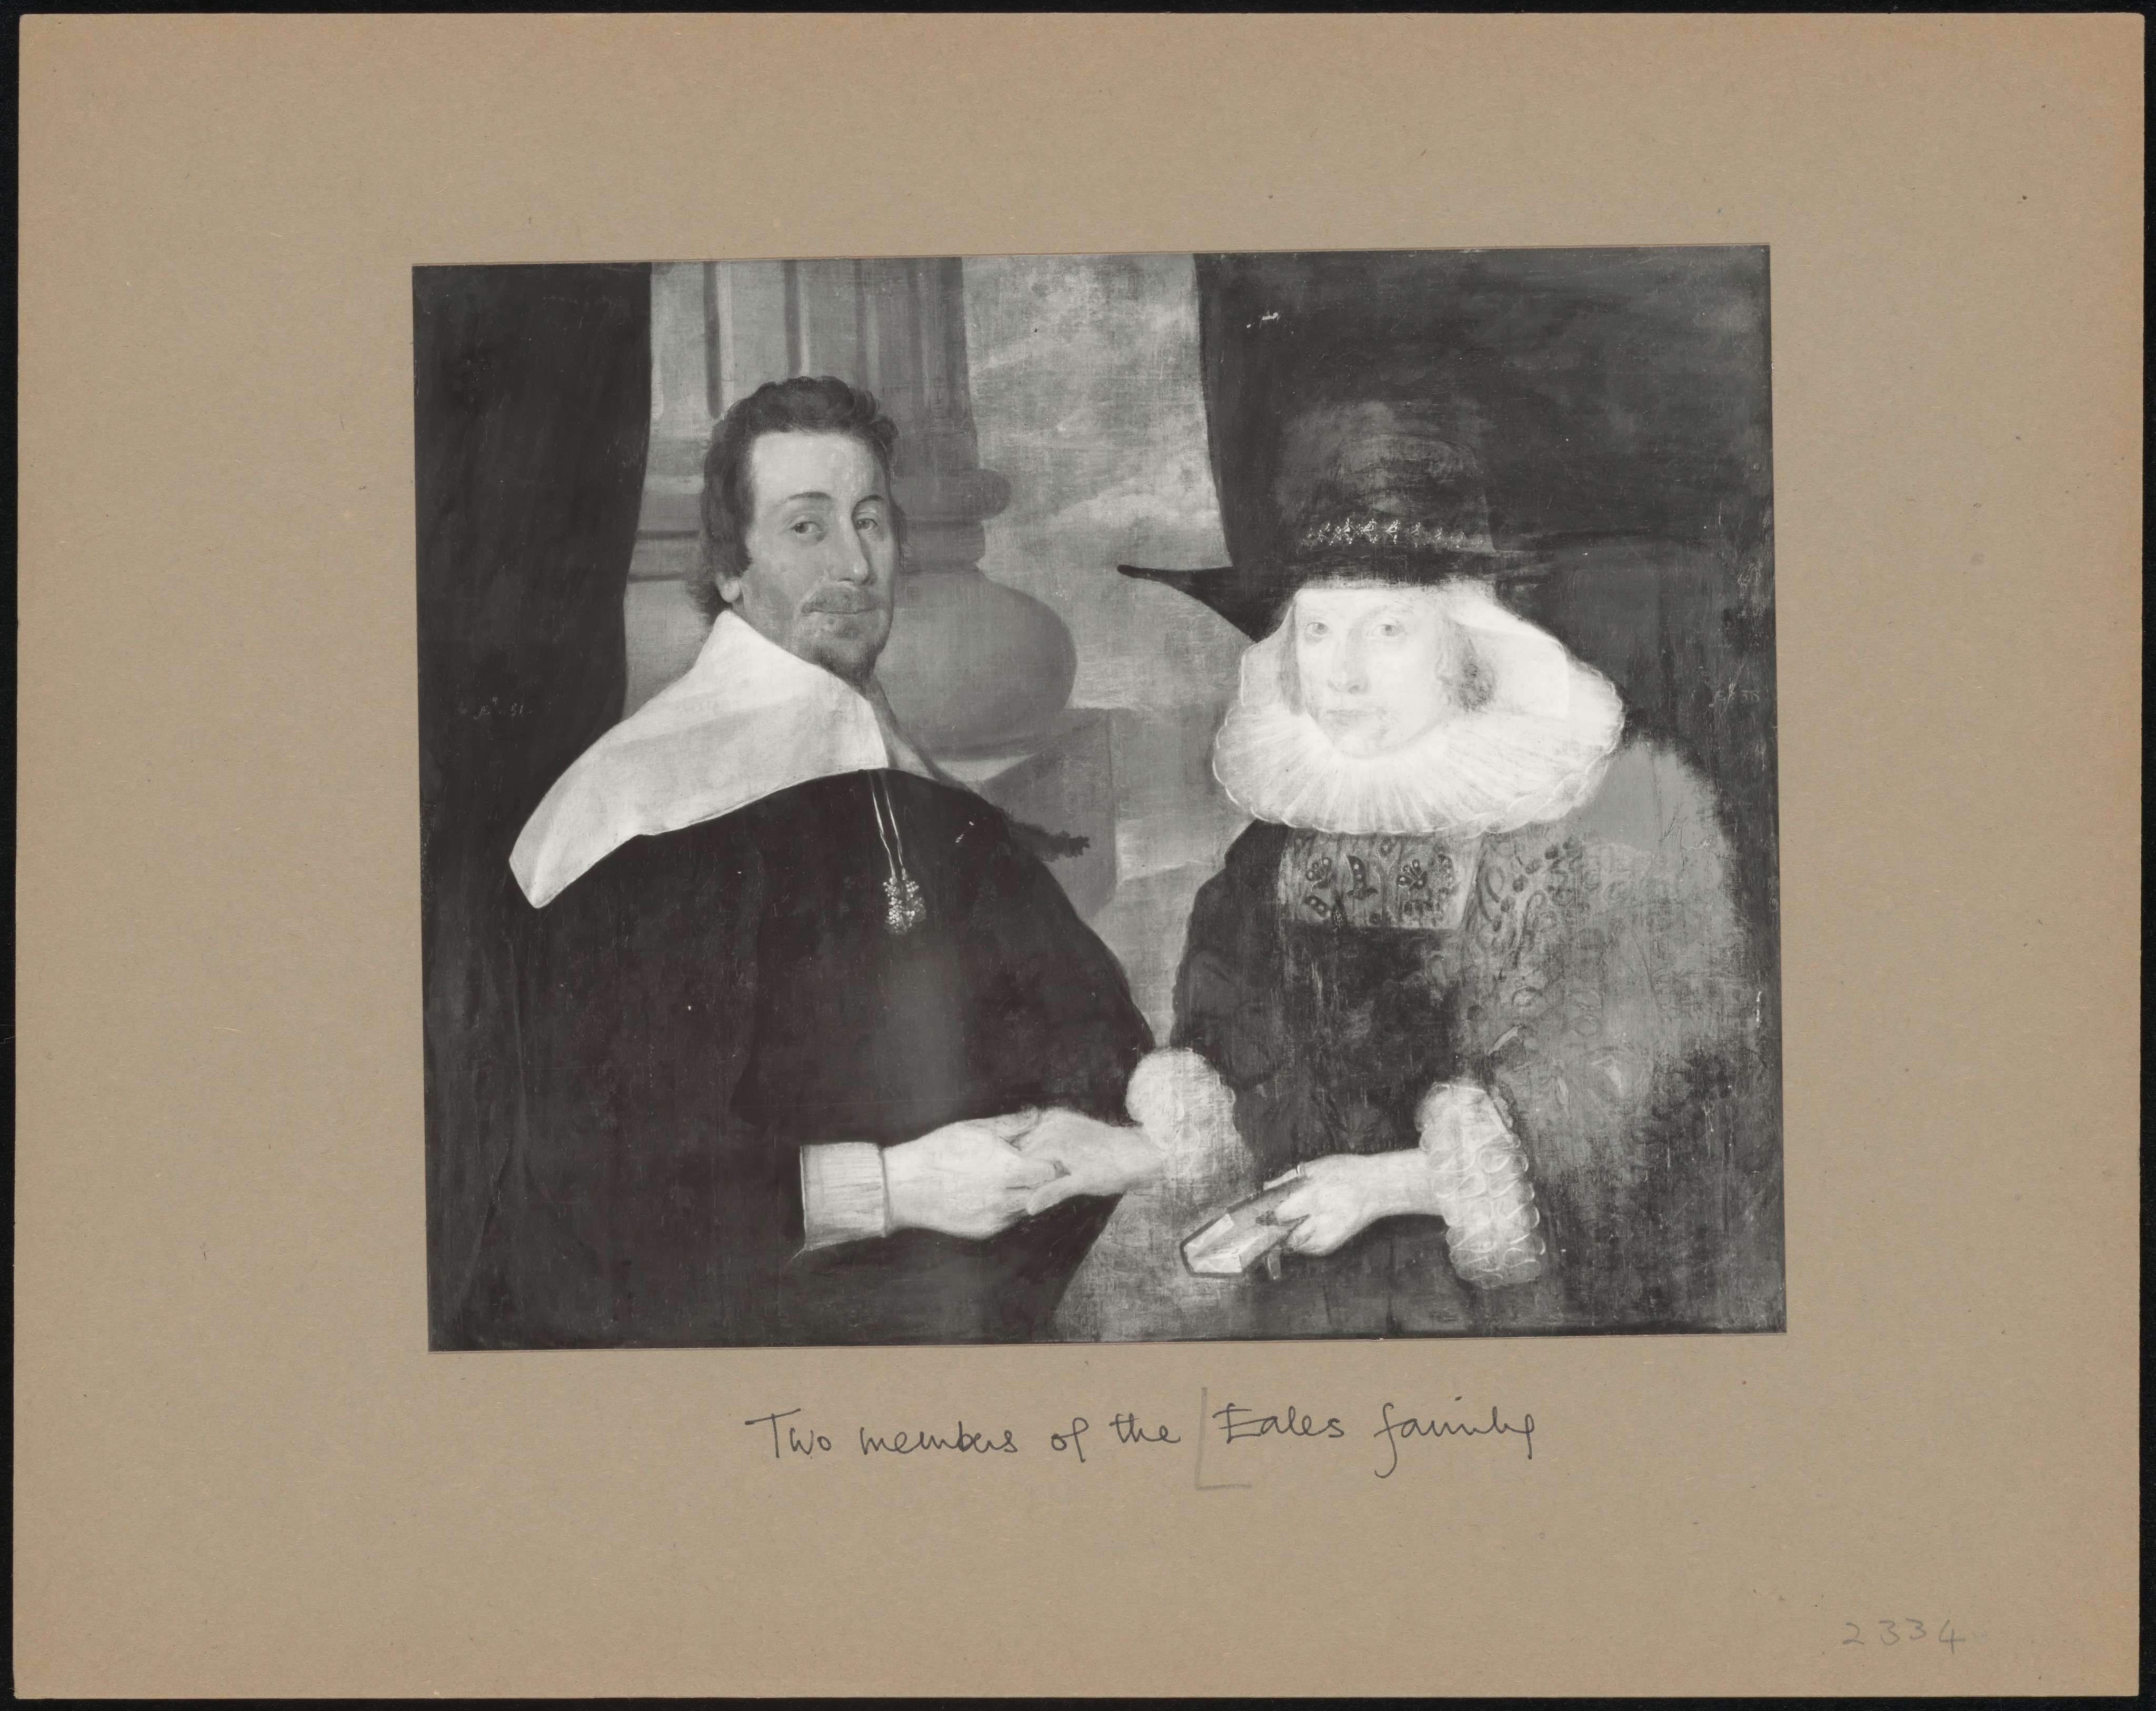 Two members of the Eales family
2334